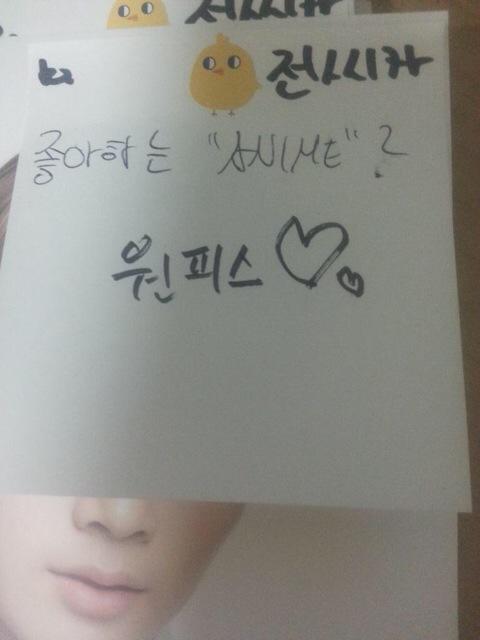 전시카
전시카
좋아하는 "ANIME"?
원피스♡♡